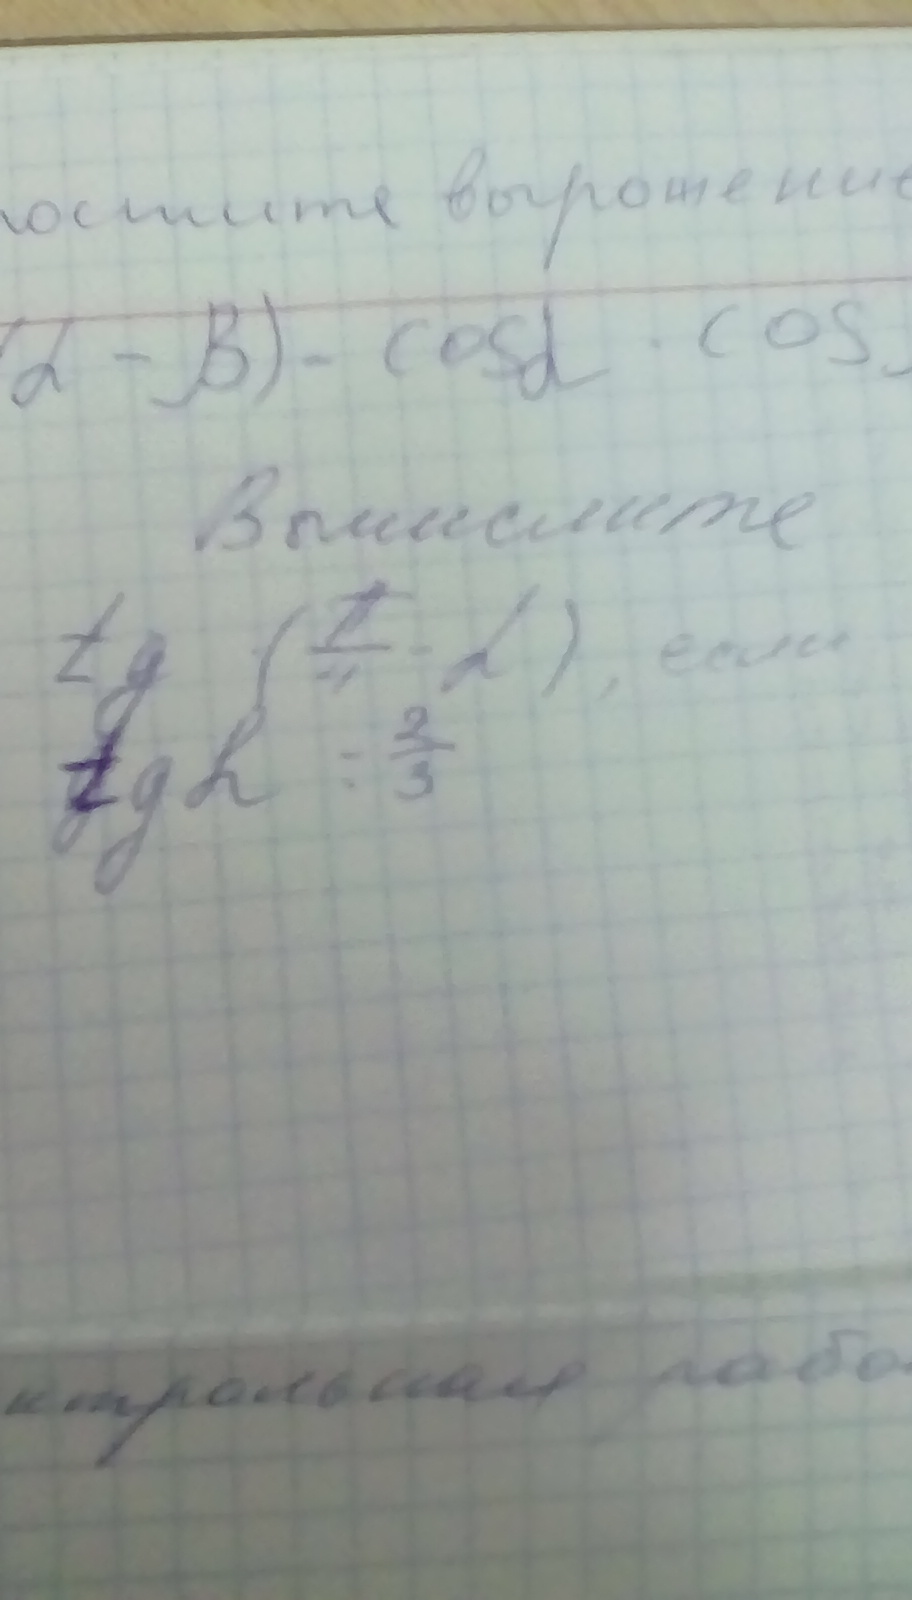 ростите вырожение
(α - β) - cosα · cos
Вычислите
tg (π/4 - α), если
tg α = 2/3
нтрольная рабо